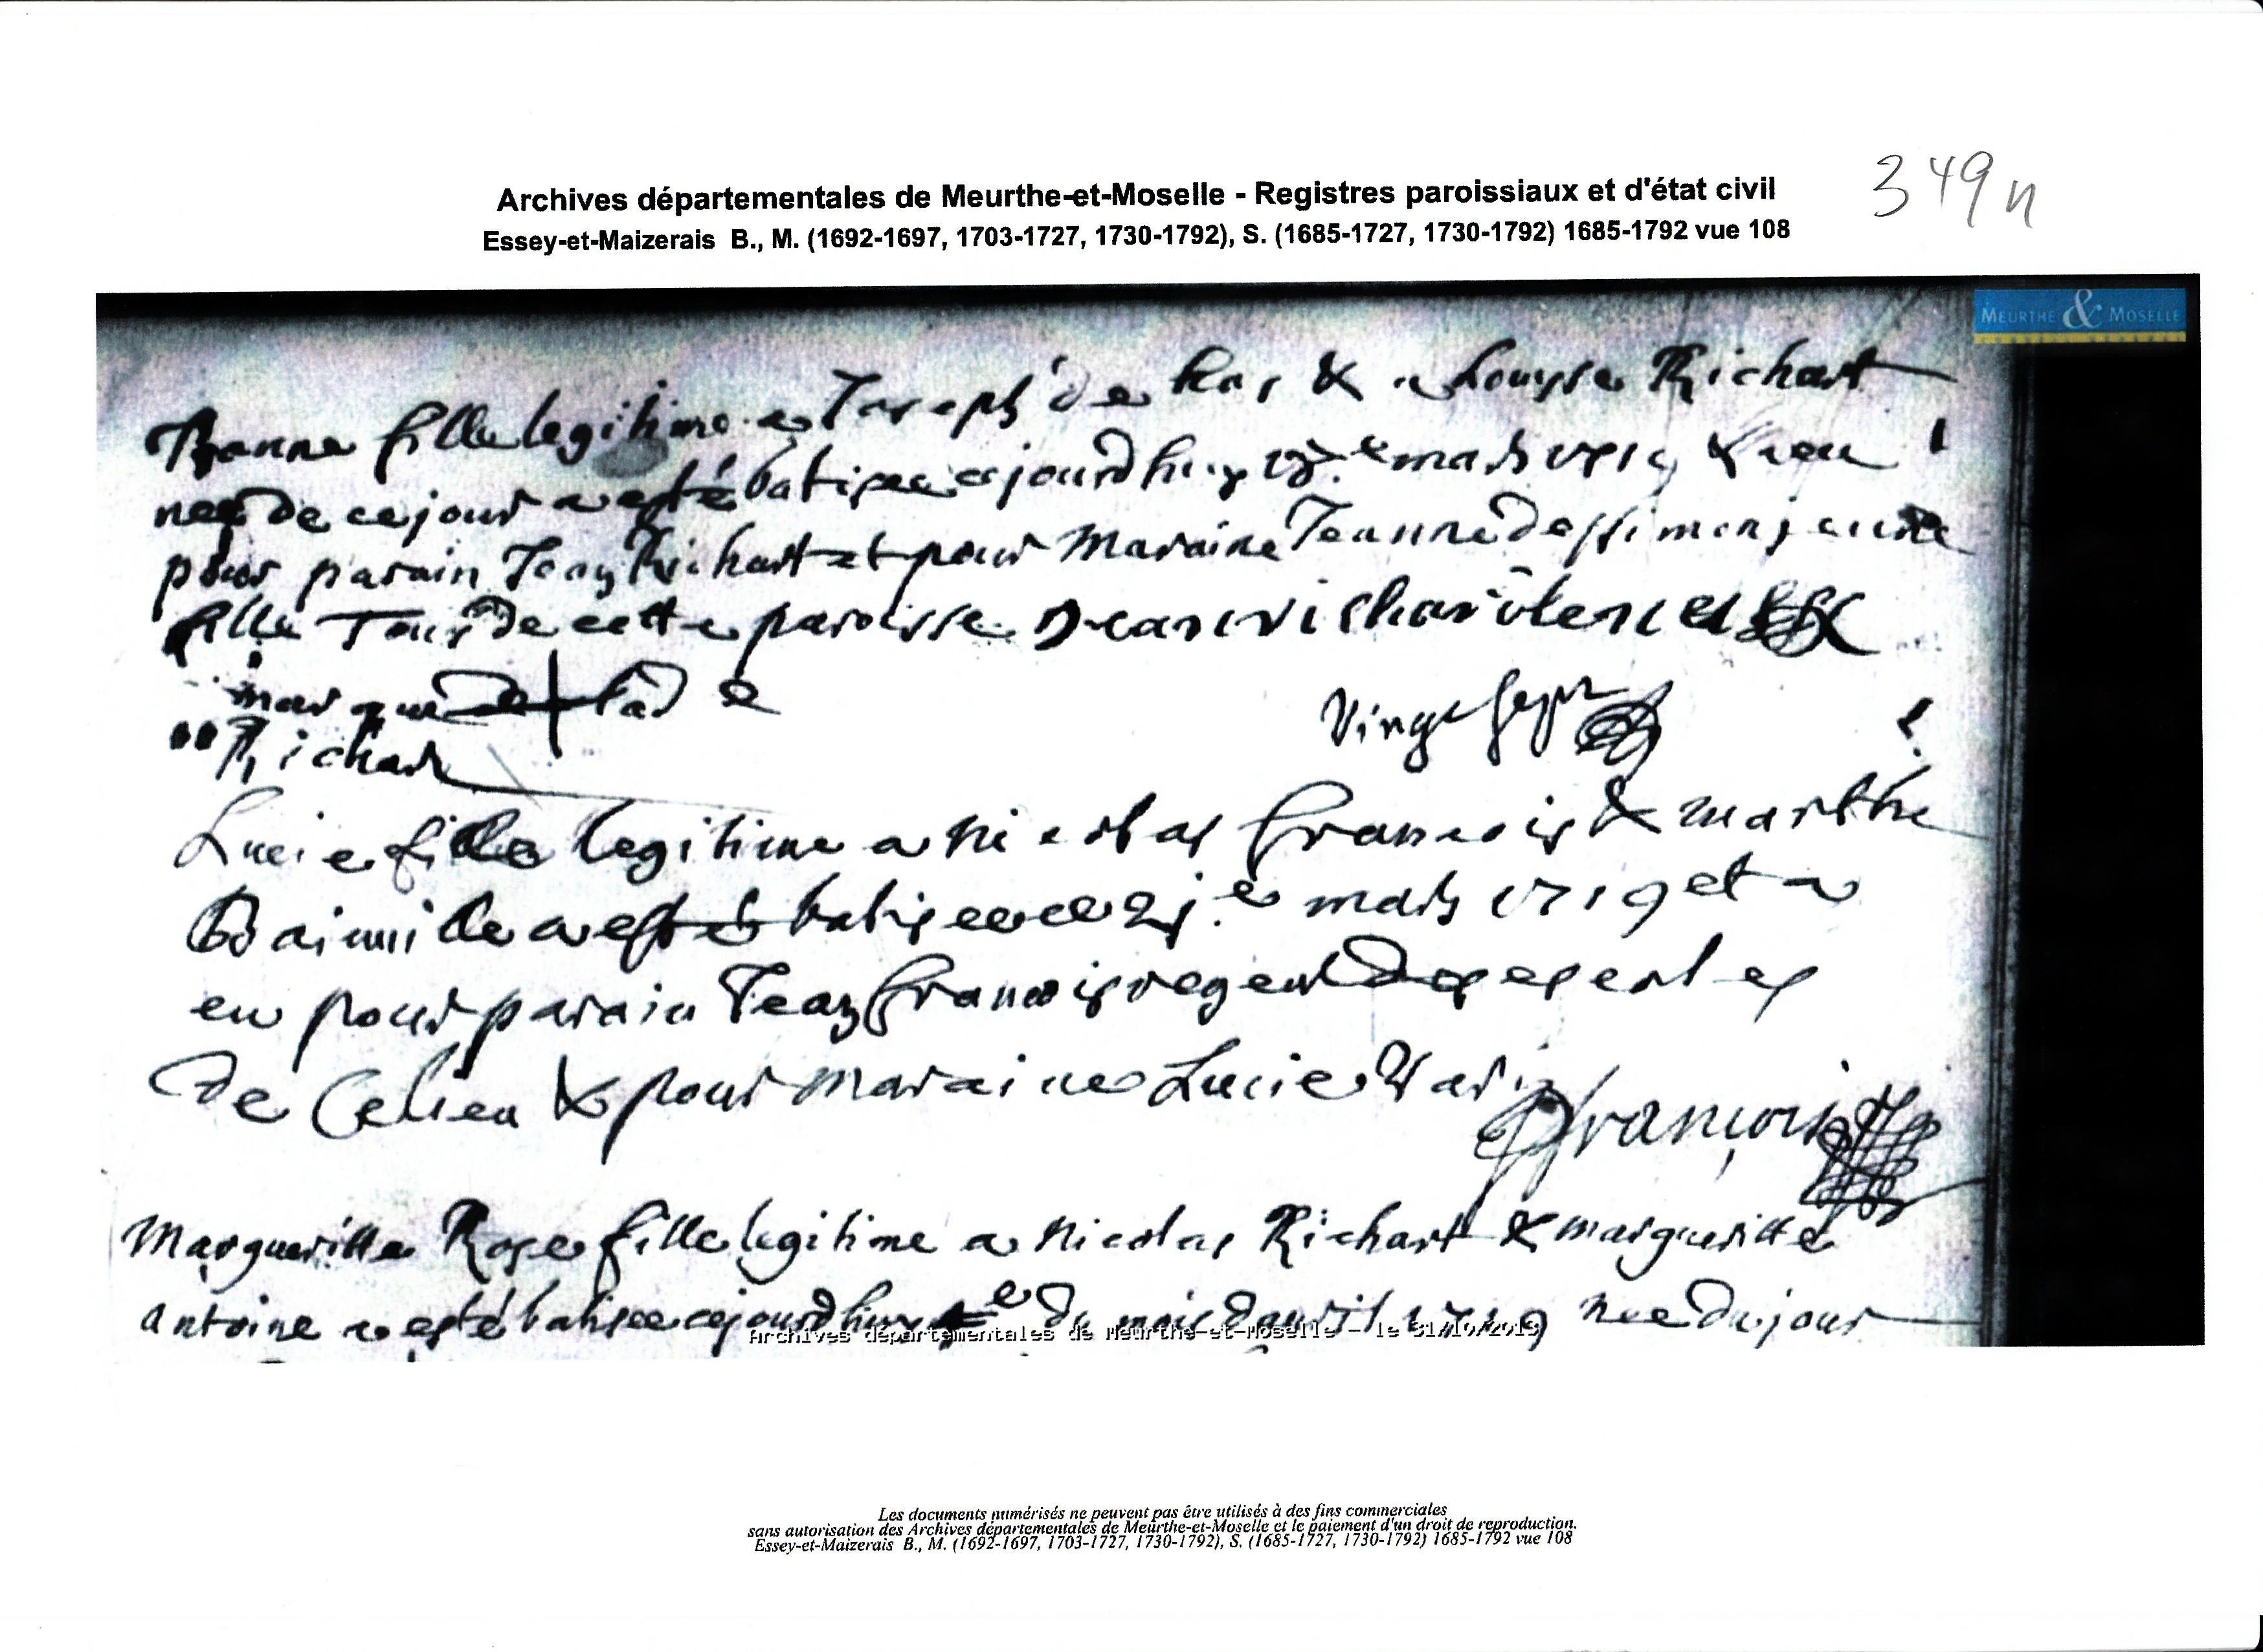 Archives départementales de Meurthe-et-Moselle - Registres paroissiaux et d'état civil
349n
Essey-et-Maizerais B., M. (1692-1697, 1703-1727, 1730-1792), S. (1685-1727, 1730-1792) 1685-1792 vue 108
MEURTHE & MOSELLE
fille legitime a Joseph de & a Louyse Richart
nee de ce jour a esté batisee cejourdhuy mars & a eu
pour parain Jean Richart et pour Maraine Jeanne jeune
fille Tous de cette paroisse
marque de + la d
Richart
Lucie fille legitime a Nicolas francois & marthe
a esté batisee le mars 1719 et a
eu pour parain Jean francois regent des escoles
de & pour Maraine Lucie
françois
Margueritte Rose fille legitime a Nicolas Richart & margueritte
antoine a esté batisee cejourdhuy du mois davril 1719 nee du jour
Archives départementales de Meurthe-et-Moselle - le 31/10/2019
Les documents numérisés ne peuvent pas être utilisés à des fins commerciales
sans autorisation des Archives départementales de Meurthe-et-Moselle et le paiement d'un droit de reproduction.
Essey-et-Maizerais B., M. (1692-1697, 1703-1727, 1730-1792), S. (1685-1727, 1730-1792) 1685-1792 vue 108